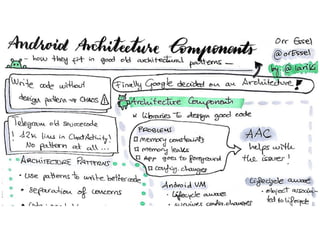 Android Architecture Components
— how they fit in good old architectural patterns —
Orr Essel
@orEssel
by @lariki
Write code without
design pattern → CHAOS
Finally Google decided on an Architecture!
Architecture Components
* Libraries to design good code
Telegram old sourcecode
! 12k lines in ChatActivity!
No pattern at all...
PROBLEMS
memory constraints
memory leaks
App goes to foreground
config. changes
AAC
helps with
the issues!
ARCHITECTURE PATTERNS
• Use patterns to write better code
• separation of concerns
Android VM
• Lifecycle aware
• survives config. changes
Lifecycle aware
• object associa-
ted to Lifecycle